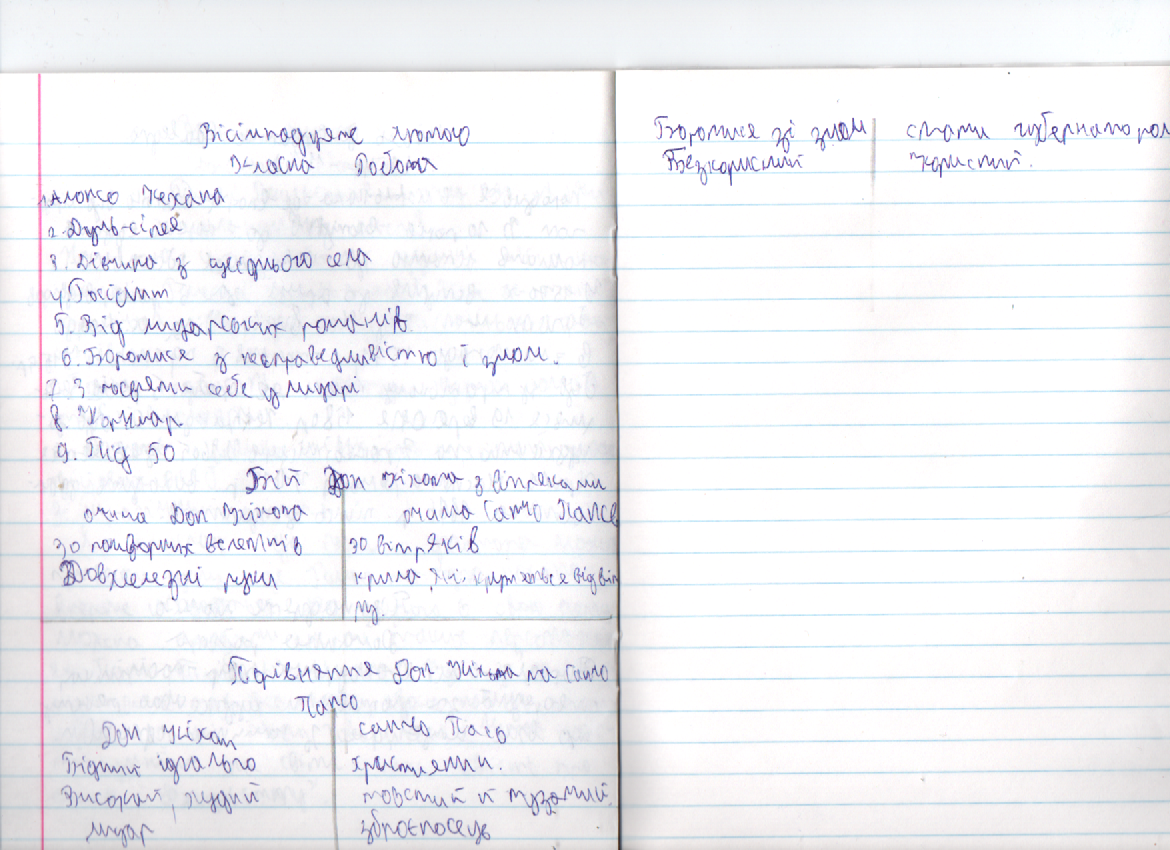 Вісімнадцяте лютого
Класна Робота
1. Алонсо Кехана
2. Дуль-сінея
3. Дівчина з сусіднього села
4. Росінант
5. Від лицарських романів
6. Боротися з несправедливістю і злом.
7. З посвяти себе у лицарі
8. Корчмар
9. Під 50
Бій Дон Кіхота з вітряками
очима Дон Кіхота | очима Санчо Панса
30 потворних велетнів | 30 вітряків
Довжелезні руки | крила, які крутяться від віт
ру.
Порівняння Дон Кіхота та Санчо
Пансо
Дон Кіхот | санчо Пансо
Бідний ідальго | християнин.
Високий, худий | товстий й пузатий
лицар | зброєносець
Боротися зі злом | стати губернатором
Безкорисний | Корисний.